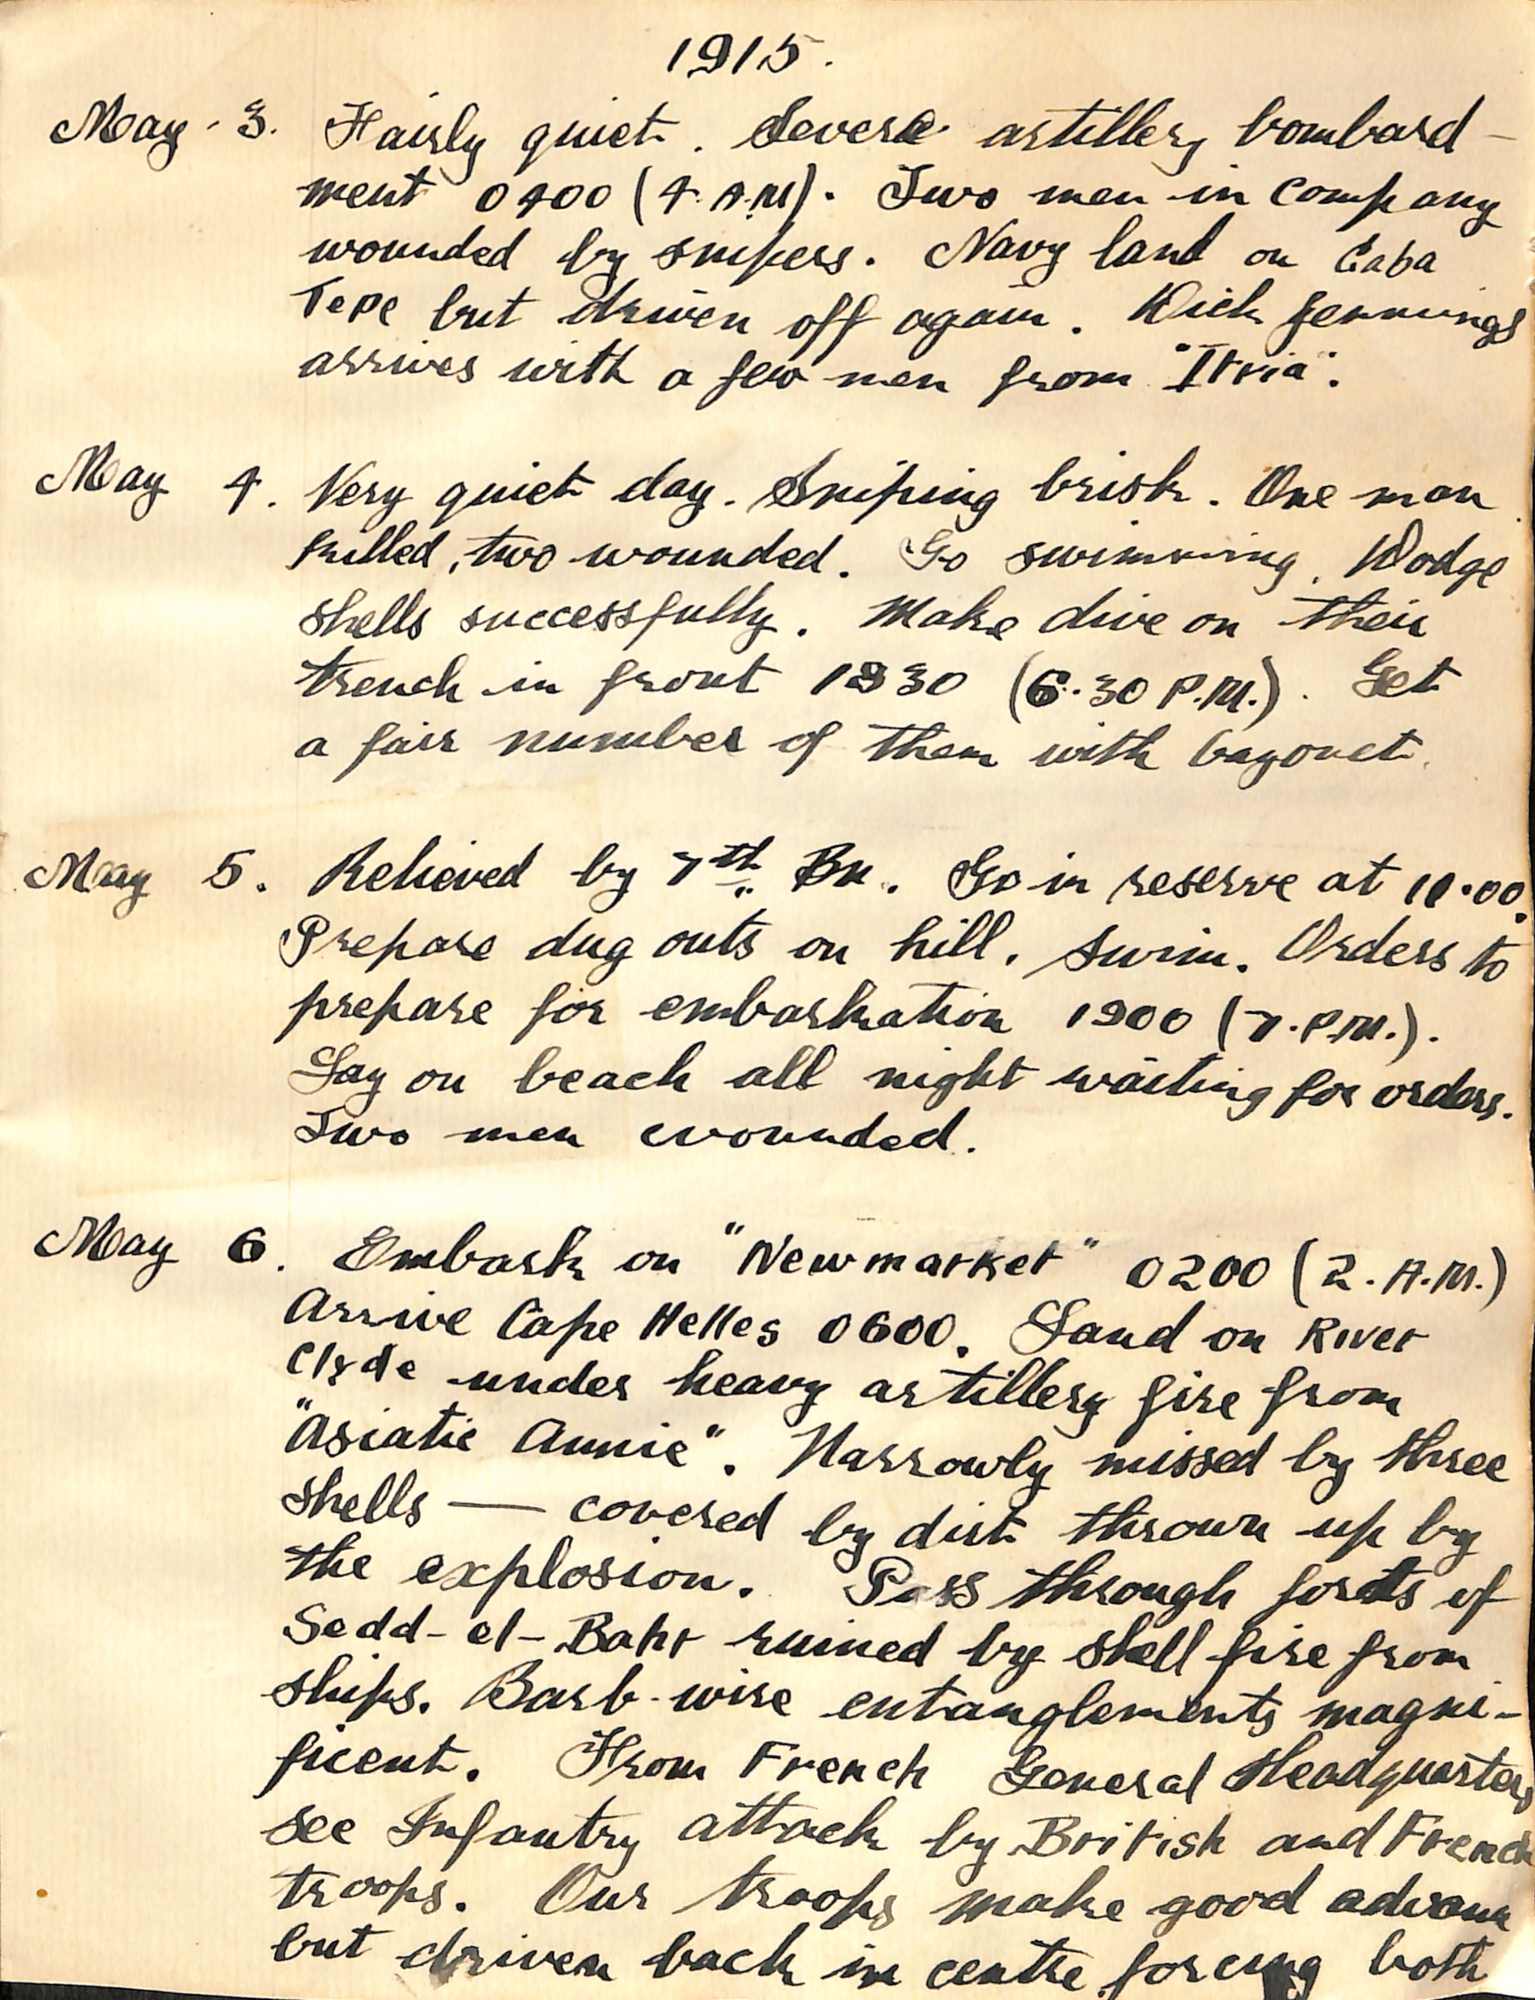 1915.
May 3. Fairly quiet. Severe artillery bombard-
ment 0400 (4 A.M). Two men in company
wounded by snipers. Navy land on Gaba
Tepe but driven off again. Dick Jennings
arrives with a few men from "Itria".
May 4. Very quiet day. Sniping brisk. One man
killed, two wounded. Go swimming. Dodge
shells successfully. Make dive on their
trench in front 1830 (6.30 P.M.). Get
a fair number of them with bayonet.
May 5. Relieved by 7th Bn. Go in reserve at 11.00.
Prepare dug outs on hill. Swim. Orders to
prepare for embarkation 1900 (7.P.M.).
Lay on beach all night waiting for orders.
Two men wounded.
May 6. Embark on "Newmarket" 0200 (2.A.M.)
Arrive Cape Helles 0600. Land on River
Clyde under heavy artillery fire from
"Asiatic Annie". Narrowly missed by three
shells — covered by dirt thrown up by
the explosion. Pass through forts of
Sedd-el-Bahr ruined by shell fire from
ships. Barb-wire entanglements magni-
ficent. From French General Headquarters
see Infantry attack by British and French
troops. Our troops make good advance
but driven back in centre forcing both